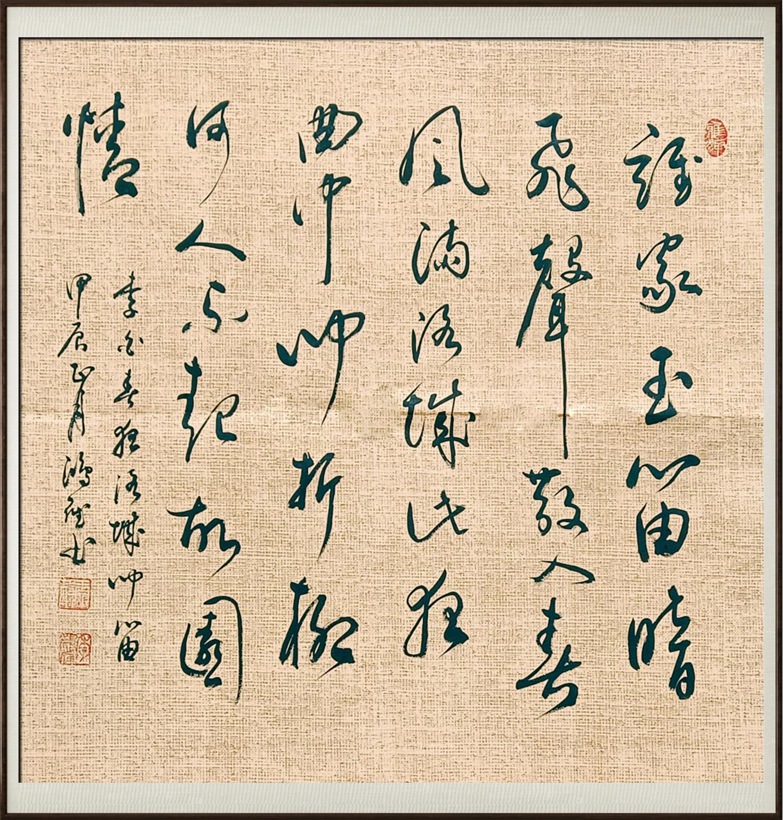 誰家玉笛暗
飛聲散入春
風滿洛城此夜
曲中聞折柳
何人不起故園
情
李白春夜洛城聞笛
甲辰正月鴻书